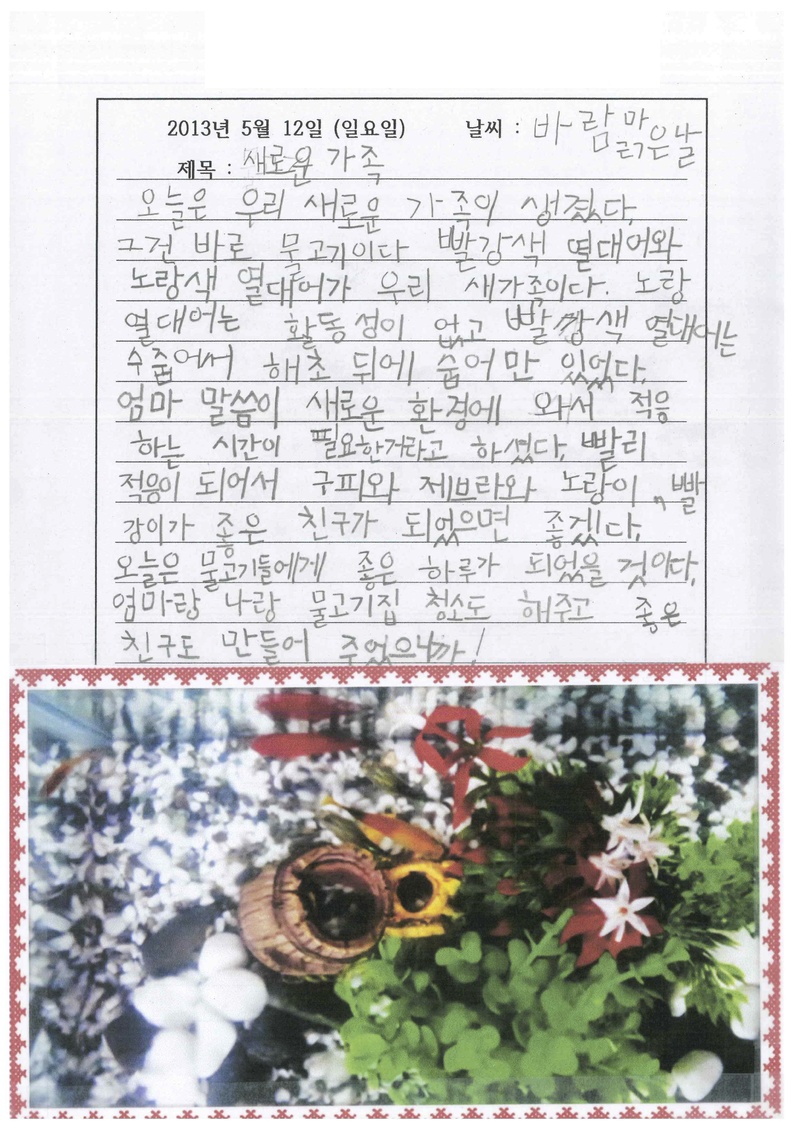 2013년 5월 12일 (일요일) 날씨 : 바람 맑은날
제목 : 새로운 가족
오늘은 우리 새로운 가족이 생겼다.
그건 바로 물고기이다 빨강색 열대어와
노랑색 열대어가 우리 새가족이다. 노랑
열대어는 활동성이 없고 빨깡색 열대어는
수줍어서 해초 뒤에 숨어만 있었다.
엄마 말씀이 새로운 환경에 와서 적응
하는 시간이 필요한거라고 하셨다. 빨리
적응이 되어서 구피와 제브라와 노랑이, 빨
강이가 좋은 친구가 되었으면 좋겠다.
오늘은 물고기들에게 좋은 하루가 되었을 것이다.
엄마랑 나랑 물고기집 청소도 해주고 좋은
친구도 만들어 주었으니까!